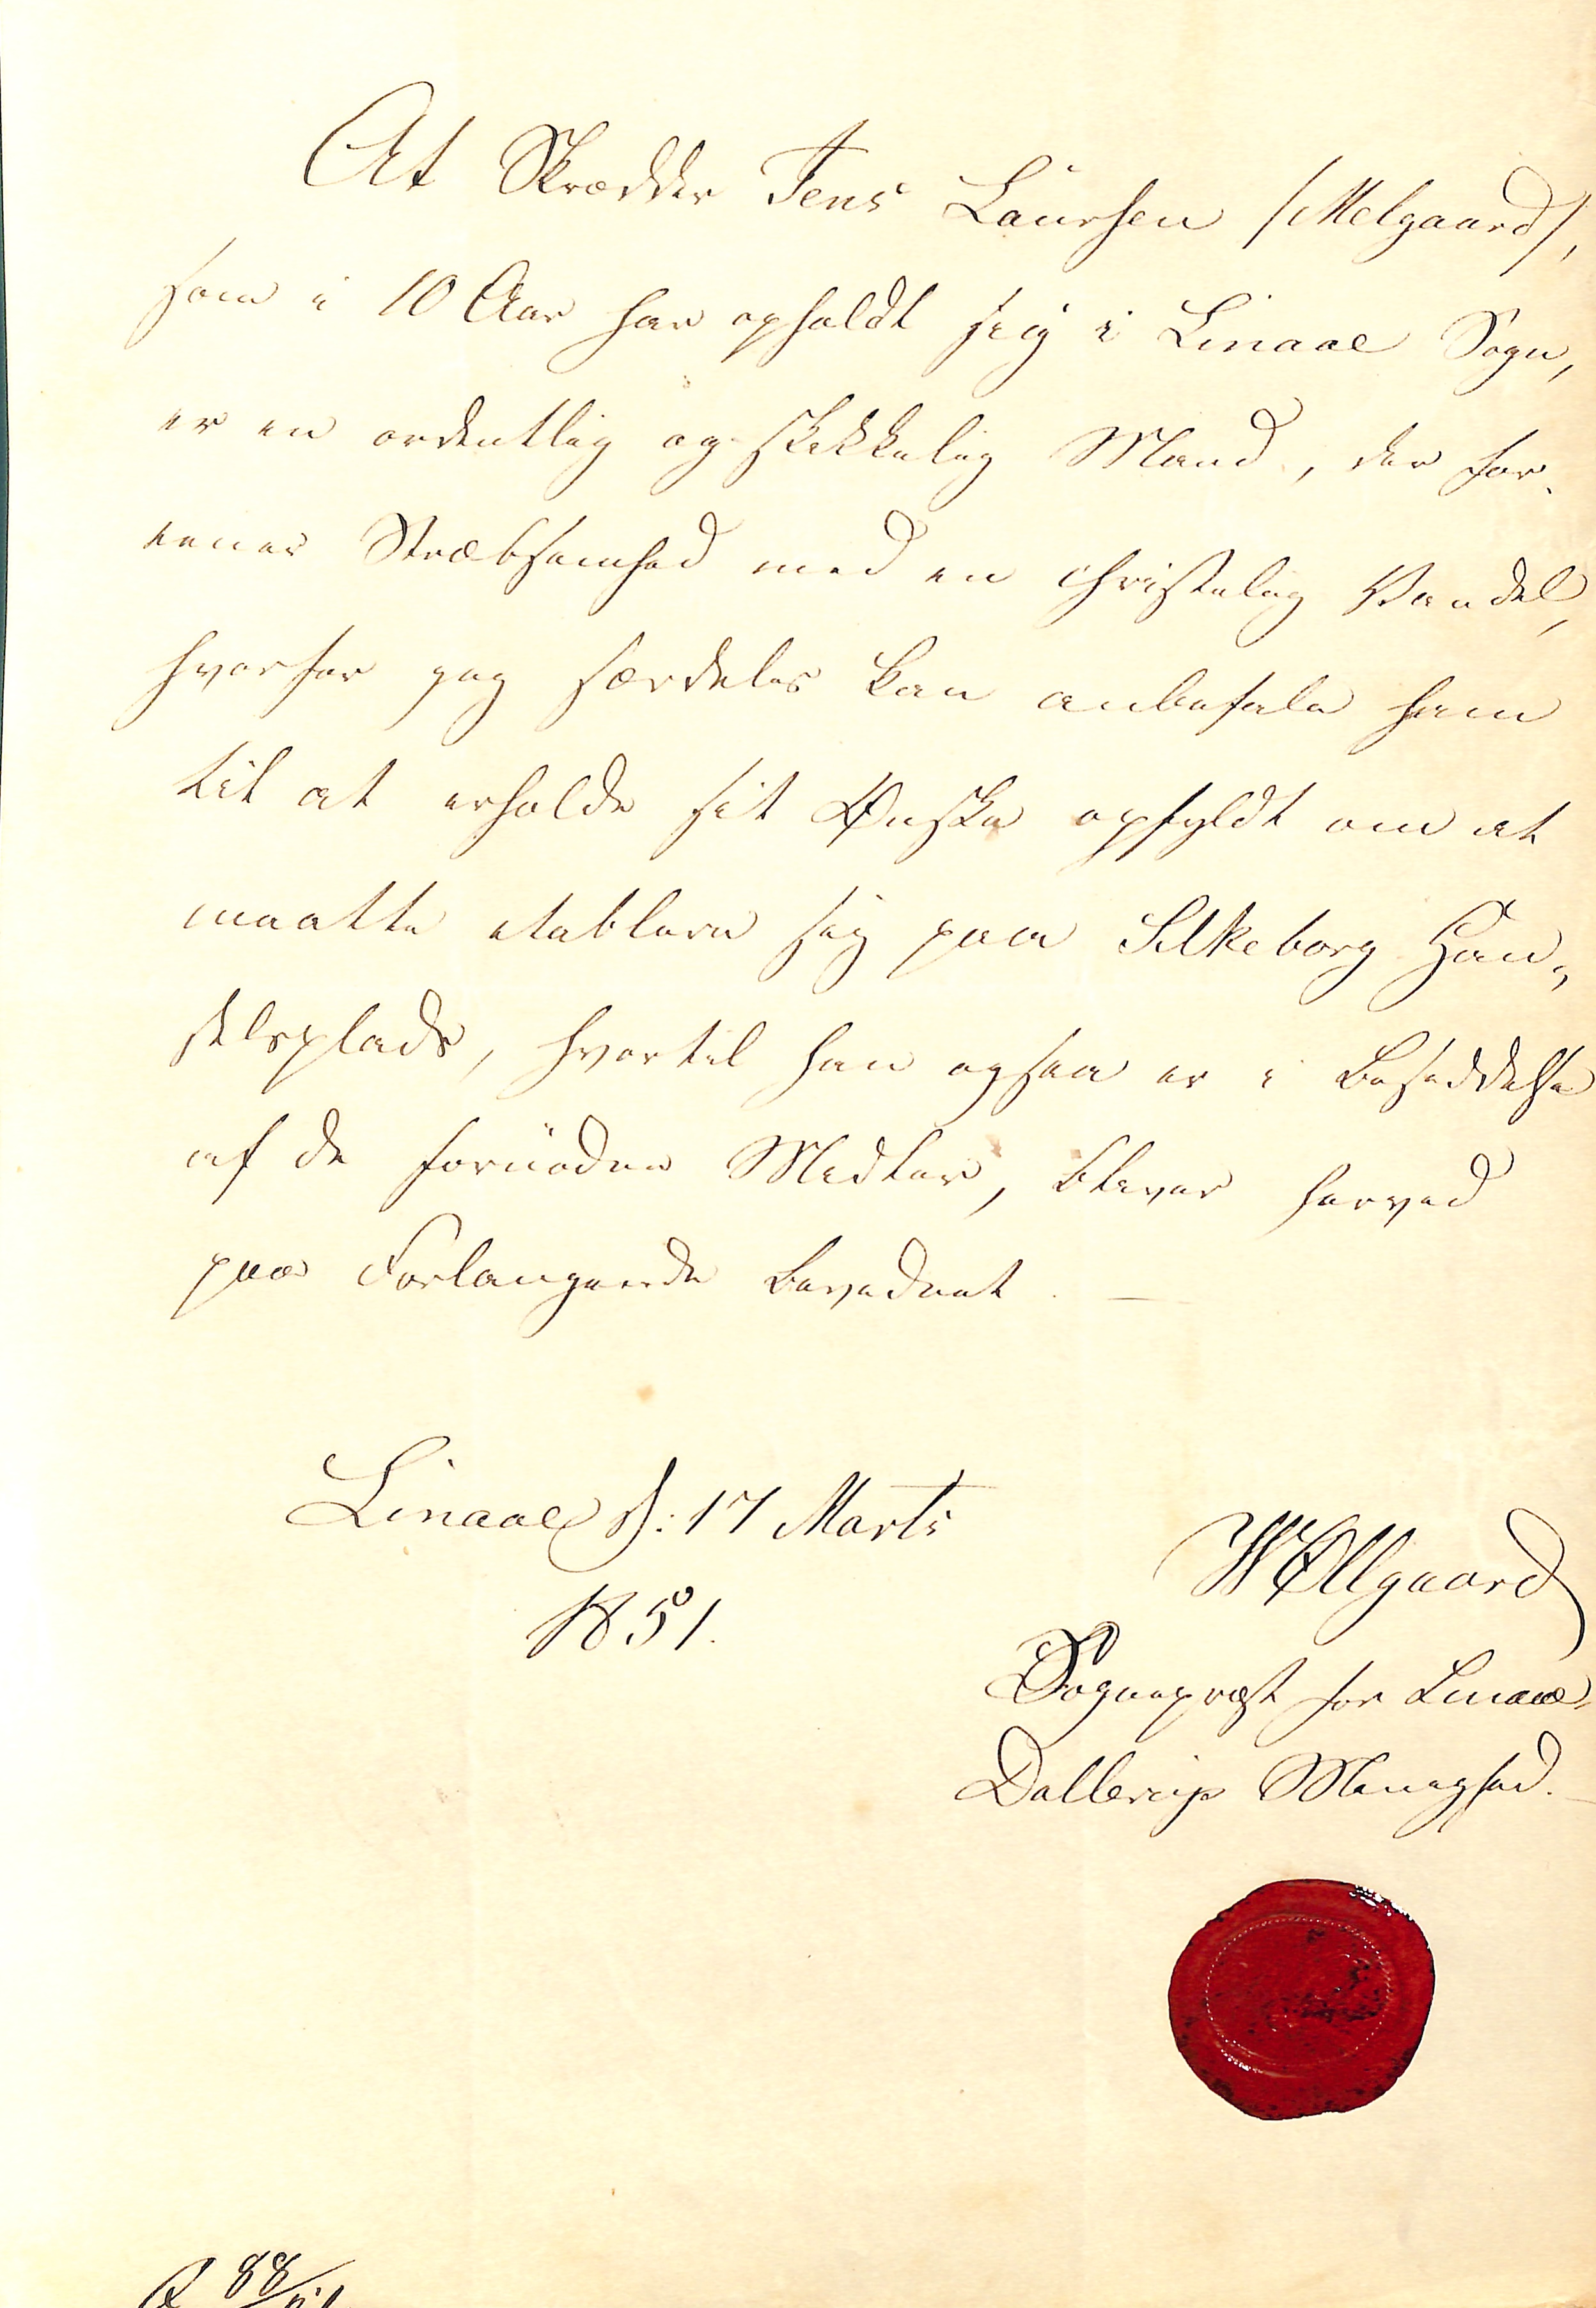 At Skrædder Jens Laursen /Melgaard/,
som i 10 Aar har opholdt sig i Linaae Sogn,
er en ordentlig og skikkelig Mand, der for-
eener Stræbsomhed med en christelig Vandel,
hvorfor jeg særdeles kan anbefale ham
til at erholde sit Ønske opfyldt om at
maatte etablere sig paa Silkeborg Han-
delsplads, hvortil han ogsaa er i Besiddelse
af de fornødne Midler, bliver herved
paa Forlangende bevidnet.
Linaae d: 17 Marts
1851.
WØllgaard
Sognepræst for Linaae,
Dallerup Menighed.
88